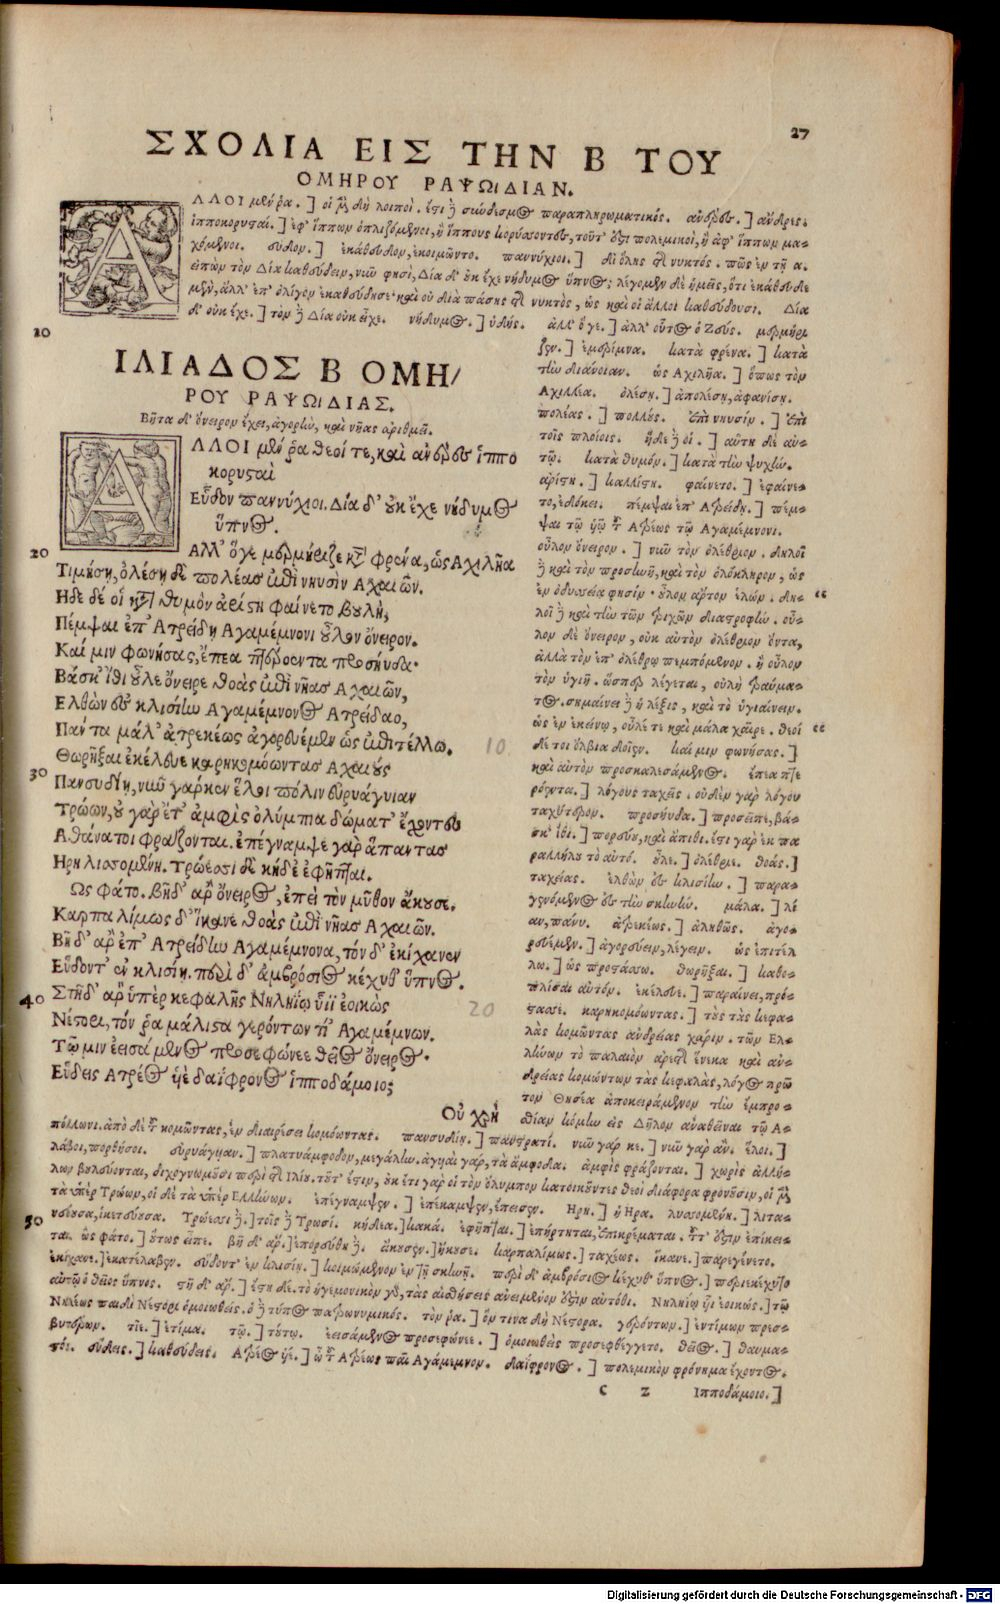 27
ΣΧΟΛΙΑ ΕΙΣ ΤΗΝ Β ΤΟΥ
ΟΜΗΡΟΥ ΡΑΨΩΙΔΙΑΝ.
ΑΛΛΟΙ μέν ῥα.] οἱ μὲν δὴ λοιποί. ἔστι δὲ σύνδεσμος παραπληρωματικός. ἀνέρες.] ἄνδρες.
ἱπποκορυσταί.] ἐφ' ἵππων ὁπλιζόμενοι, ἢ ἵππους κορύσσοντες, τοῦτ' ἔστι πολεμικοί, ἢ ἀφ' ἵππων μα-
χόμενοι. εὗδον.] ἐκάθευδον, ἐκοιμῶντο. παννύχιοι.] δι' ὅλης τῆς νυκτός. πῶς ἐν τῇ α.
εἰπὼν τὸν Δία καθεύδειν, νῦν φησὶ, Δία δ' οὐκ ἔχε νήδυμος ὕπνος; λέγομεν δὲ ἡμεῖς, ὅτι ἐκάθευδε
μὲν, ἀλλ' ἐπ' ὀλίγον ἐκαθεύδησε καὶ οὐ διὰ πάσης τῆς νυκτὸς, ὡς καὶ οἱ ἄλλοι καθεύδουσι. Δία
δ' οὐκ ἔχε.] τὸν δὲ Δία οὐκ εἶχε. νήδυμος.] ἡδύς. ἀλλ' ὅγε.] ἀλλ' οὗτος ὁ Ζεύς. μερμήρι
10
ΙΛΙΑΔΟΣ Β ΟΜΗ/
ΡΟΥ ΡΑΨΩΙΔΙΑΣ.
Βῆτα δ' ὄνειρον ἔχει, ἀγορὴν, καὶ νῆας ἀριθμεῖ.
ΑΛΛΟΙ μέν ῥα θεοί τε, καὶ ἀνέρες ἱππο
κορυσταὶ
Εὗδον παννύχιοι. Δία δ' οὐκ ἔχε νήδυμος
ὕπνος.
Αλλ' ὅγε μερμήριζε κατὰ φρένα, ὡς Αχιλῆα
20
Τιμήσῃ, ὀλέσῃ δὲ πολέας ἐπὶ νηυσὶν Αχαιῶν.
Ηδε δέ οἱ κατὰ θυμὸν ἀρίστη φαίνετο βουλὴ,
Πέμψαι ἐπ' Ατρείδῃ Αγαμέμνονι οὖλον ὄνειρον.
Καί μιν φωνήσας, ἔπεα πτερόεντα προσηύδα·
Βάσκ' ἴθι οὖλε ὄνειρε θοὰς ἐπὶ νῆας Αχαιῶν,
Ελθὼν ἐς κλισίην Αγαμέμνονος Ατρείδαο,
Πάντα μάλ' ἀτρεκέως ἀγορευέμεν ὡς ἐπιτέλλω.
10
Θωρῆξαι ἐκέλευε καρηκομόωντας Αχαιοὺς
30
Πανσυδίῃ, νῦν γάρ κεν ἕλοι πόλιν εὐρυάγυιαν
Τρώων, οὐ γὰρ ἔτ' ἀμφὶς ὀλύμπια δώματ' ἔχοντες
Αθάνατοι φράζονται. ἐπέγναμψε γὰρ ἅπαντας
Ηρη λισσομένη. Τρώεσσι δὲ κήδε' ἐφῆπται.
Ως φάτο. βῆ δ' ἄρ' ὄνειρος, ἐπεὶ τὸν μῦθον ἄκουσε.
Καρπαλίμως δ' ἵκανε θοὰς ἐπὶ νῆας Αχαιῶν.
Βῆ δ' ἄρ' ἐπ' Ατρείδην Αγαμέμνονα, τόν δ' ἐκίχανεν
Εὕδοντ' ἐν κλισίῃ. περὶ δ' ἀμβρόσιος κέχυθ' ὕπνος.
40
Στῆ δ' ἄρ' ὑπὲρ κεφαλῆς Νηληΐῳ υἷϊ ἐοικὼς
20
Νέστορι, τόν ῥα μάλιστα γερόντων τῖ' Αγαμέμνων.
Τῷ μιν ἐεισάμενος προσεφώνεε θεῖος ὄνειρος·
Εὕδεις Ατρέος υἱὲ δαΐφρονος ἱπποδάμοιο;
Οὐ χρὴ
ξεν.] ἐμερίμνα. κατὰ φρένα.] κατὰ
τὴν διάνοιαν. ὡς Αχιλῆα.] ὅπως τὸν
Αχιλλέα. ὀλέσῃ.] ἀπολέσῃ, ἀφανίσῃ.
πολέας.] πολλούς. ἐπὶ νηυσίν.] ἐπὶ
τοῖς πλοίοις. ἥδε δέ οἱ.] αὕτη δὲ αὐ-
τῷ. κατὰ θυμόν.] κατὰ τὴν ψυχήν.
ἀρίστη.] καλλίστη. φαίνετο.] ἐφαίνε-
το, ἐδόκει. πέμψαι ἐπ' Ατρείδῃ.] πέμ-
ψαι τῷ υἱῷ τοῦ Ατρέως τῷ Αγαμέμνονι.
οὖλον ὄνειρον.] νῦν τὸν ὀλέθριον. δηλοῖ
δὲ καὶ τὸν προσηνῆ, καὶ τὸν ὁλόκληρον, ὡς
ἐν ὀδυσσείᾳ φησίν· οὖλον ἄρτον ἑλών. δη-
λοῖ δὲ καὶ τὴν τῶν τριχῶν διαστροφήν. οὖ-
λον δὲ ὄνειρον, οὐκ αὐτὸν ὀλέθριον ὄντα,
ἀλλὰ τὸν ἐπ' ὀλέθρῳ πεμπόμενον. ἢ οὖλον
τὸν ὑγιῆ. ὥσπερ λέγεται, οὐλὴ τραύμα-
τος. σημαίνει δὲ ἡ λέξις, καὶ τὸ ὑγιαίνειν.
ὡς ἐν ἐκείνῳ, οὖλέ τε καὶ μάλα χαῖρε. θεοί
δέ τοι ὄλβια δοῖεν. καί μιν φωνήσας.]
καὶ αὐτὸν προσκαλεσάμενος. ἔπεα πτε
ρόεντα.] λόγους ταχεῖς. οὐδὲν γὰρ λόγου
ταχύτερον. προσηύδα.] προσεῖπε, βά-
σκ' ἴθι.] πορεύου, καὶ ἄπιθι. ἔστι γὰρ ἐκ πα
ραλλήλου τὸ αὐτό. οὖλε.] ὀλέθριε. θοάς.]
ταχείας. ἐλθὼν ἐς κλισίην.] παρα-
γενόμενος ἐς τὴν σκηνήν. μάλα.] λί
αν, πάνυ. ἀτρεκέως.] ἀληθῶς. ἀγο-
ρευέμεν.] ἀγορεύειν, λέγειν. ὡς ἐπιτέλ
λω.] ὡς προστάσσω. θωρῆξαι.] καθο-
πλίσαι αὐτόν. ἐκέλευε.] παραίνει, πρό-
τασσε. καρηκομόωντας.] τοὺς τὰς κεφα-
λὰς κομῶντας ἀνδρείας χάριν. τῶν Ελ-
λήνων τὸ παλαιὸν ἀρετῆς ἕνεκα καὶ ἀν-
δρείας κομώντων τὰς κεφαλὰς, λόγος πρῶ
τον Θησέα ἀποκειράμενον τὴν ἔμπρο-
σθίαν κόμην εἰς Δῆλον ἀναθεῖναι τῷ Α-
πόλλωνι. ἀπὸ δὲ τοῦ κομῶντας, ἐν διαιρέσει κομόωντας. πανσυδίῃ.] παντρατί. νῦν γάρ κε.] νῦν γὰρ ἄν. ἕλοι.]
λάβοι, πορθήσοι. εὐρυάγυιαν.] πλατυάμφοδον, μεγάλην. ἀγυιαὶ γὰρ, τὰ ἄμφοδα. ἀμφὶς φράζονται.] χωρὶς ἀλλή-
λων βουλεύονται, διχογνωμοῦσι περὶ τῆς Ιλίου. τοῦτ' ἔστιν, οὐκ ἔτι γὰρ οἱ τὸν ὄλυμπον κατοικοῦντες θεοὶ διάφορα φρονοῦσιν, οἱ μὲν
τὰ ὑπὲρ Τρώων, οἱ δὲ τὰ ὑπὲρ Ελλήνων. ἐπέγναμψεν.] ἐπέκαμψεν, ἔπεισεν. Ηρη.] ἡ Ηρα. λισσομένη.] λιτα-
50
νεύουσα, ἱκετεύουσα. Τρώεσσι δέ.] τοῖς δὲ Τρωσί. κήδεα.] κακά. ἐφῆπται.] ἐπήρτηται, ἐπικρέμαται. τοῦτ' ἔστιν ἐπίκει-
ται. ὣς φάτο.] οὕτως εἶπε. βῆ δ' ἄρ.] ἐπορεύθη δέ. ἄκουσεν.] ἤκουσε. καρπαλίμως.] ταχέως. ἵκανε.] παρεγένετο.
ἐκίχανε.] ἐκατέλαβεν. εὕδοντ' ἐν κλισίῃ.] κοιμώμενον ἐν τῇ σκηνῇ. περὶ δ' ἀμβρόσιος κέχυθ' ὕπνος.] περιεκέχυτο
αὐτῷ ὁ θεῖος ὕπνος. στῆ δ' ἄρ.] ἔστη δέ. τὸ ἡγεμονικὸν γὰρ, τὰς αἰσθήσεις ἀνειμένον ἐστὶν αὐτόθι. Νηληΐῳ υἷι ἐοικώς.] τῷ
Νηλέως παιδὶ Νέστορι ὁμοιωθείς. ὁ δὲ τύπος πατρωνυμικός. τόν ῥα.] ὅν τινα δὴ Νέστορα. γερόντων.] ἐντίμων πρεσ-
βυτέρων. τῖε.] ἐτίμα. τῷ.] τούτῳ. ἐεισάμενος προσεφώνεε.] ὁμοιωθεὶς προσεφθέγγετο. θεῖος.] θαυμα-
στός. εὕδεις.] καθεύδεις. Ατρέος υἱέ.] ὦ τοῦ Ατρέως παῖ Αγάμεμνον. δαΐφρονος.] πολεμικὸν φρόνημα ἔχοντος.
C 2 Ιπποδάμοιο.]
Digitalisierung gefördert durch die Deutsche Forschungsgemeinschaft - DFG